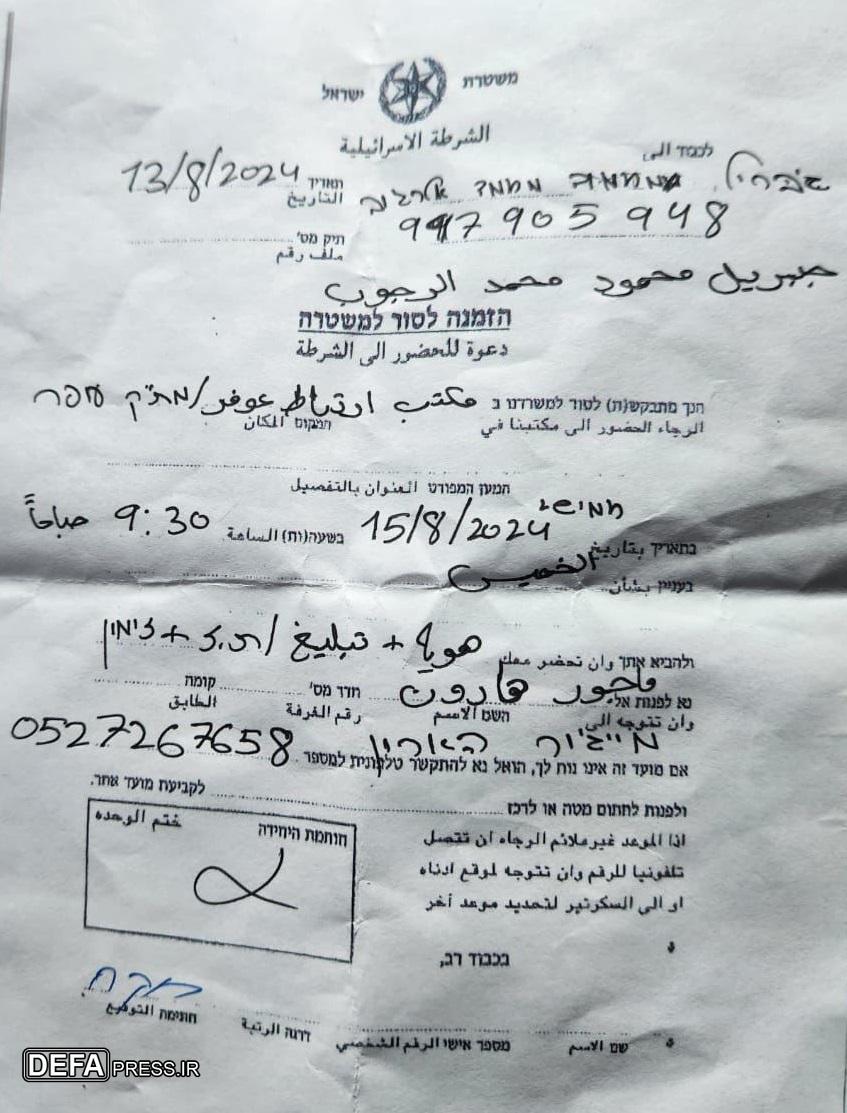 משטרת ישראל
الشرطة الاسرائيلية
לכבוד الى
ג'בריל מחמוד מחמד אלרג'וב
תאריך 13/8/2024
التاريخ
905948
תיק מס'
ملف رقم
جبريل محمود محمد الرجوب
הזמנה לסור למשטרה
دعوة للحضور الى الشرطة
הנך מתבקש(ת) לסור למשרדנו ב مكتب ارتباط عوفر/מת"ק עפר
الرجاء الحضور الى مكتبنا في המקום المكان
המען המפורט العنوان بالتفصيل
חמישי
בתאריך بتاريخ 15/8/2024 בשעה(ות) الساعة 9:30 صباحاً
الخميس
בעניין بشأن
ולהביא אתך وان تحضر معك هوية + تبليغ/ת.ז + זימון
נא לפנות אל ماجور هارون חדר מס' קומה
وان تتوجه الى השם الاسم رقم الغرفة الطابق
מייג'ור הארון
אם מועד זה אינו נוח לך, הואל נא להתקשר טלפונית למספר 0527267658
ולפנות לחתום מטה או לרכז לקביעת מועד אחר.
اذا الموعد غير ملائم الرجاء ان تتصل
تلفونيا للرقم وان تتوجه لموقع ادناه
او الى السكرتير لتحديد موعد آخر
חותמת היחידה ختم الوحده
בכבוד רב,
שם الاسم מספר אישי الرقم الشخصي דרגה الرتبة חתימה التوقيع
DEFAPRESS.IR